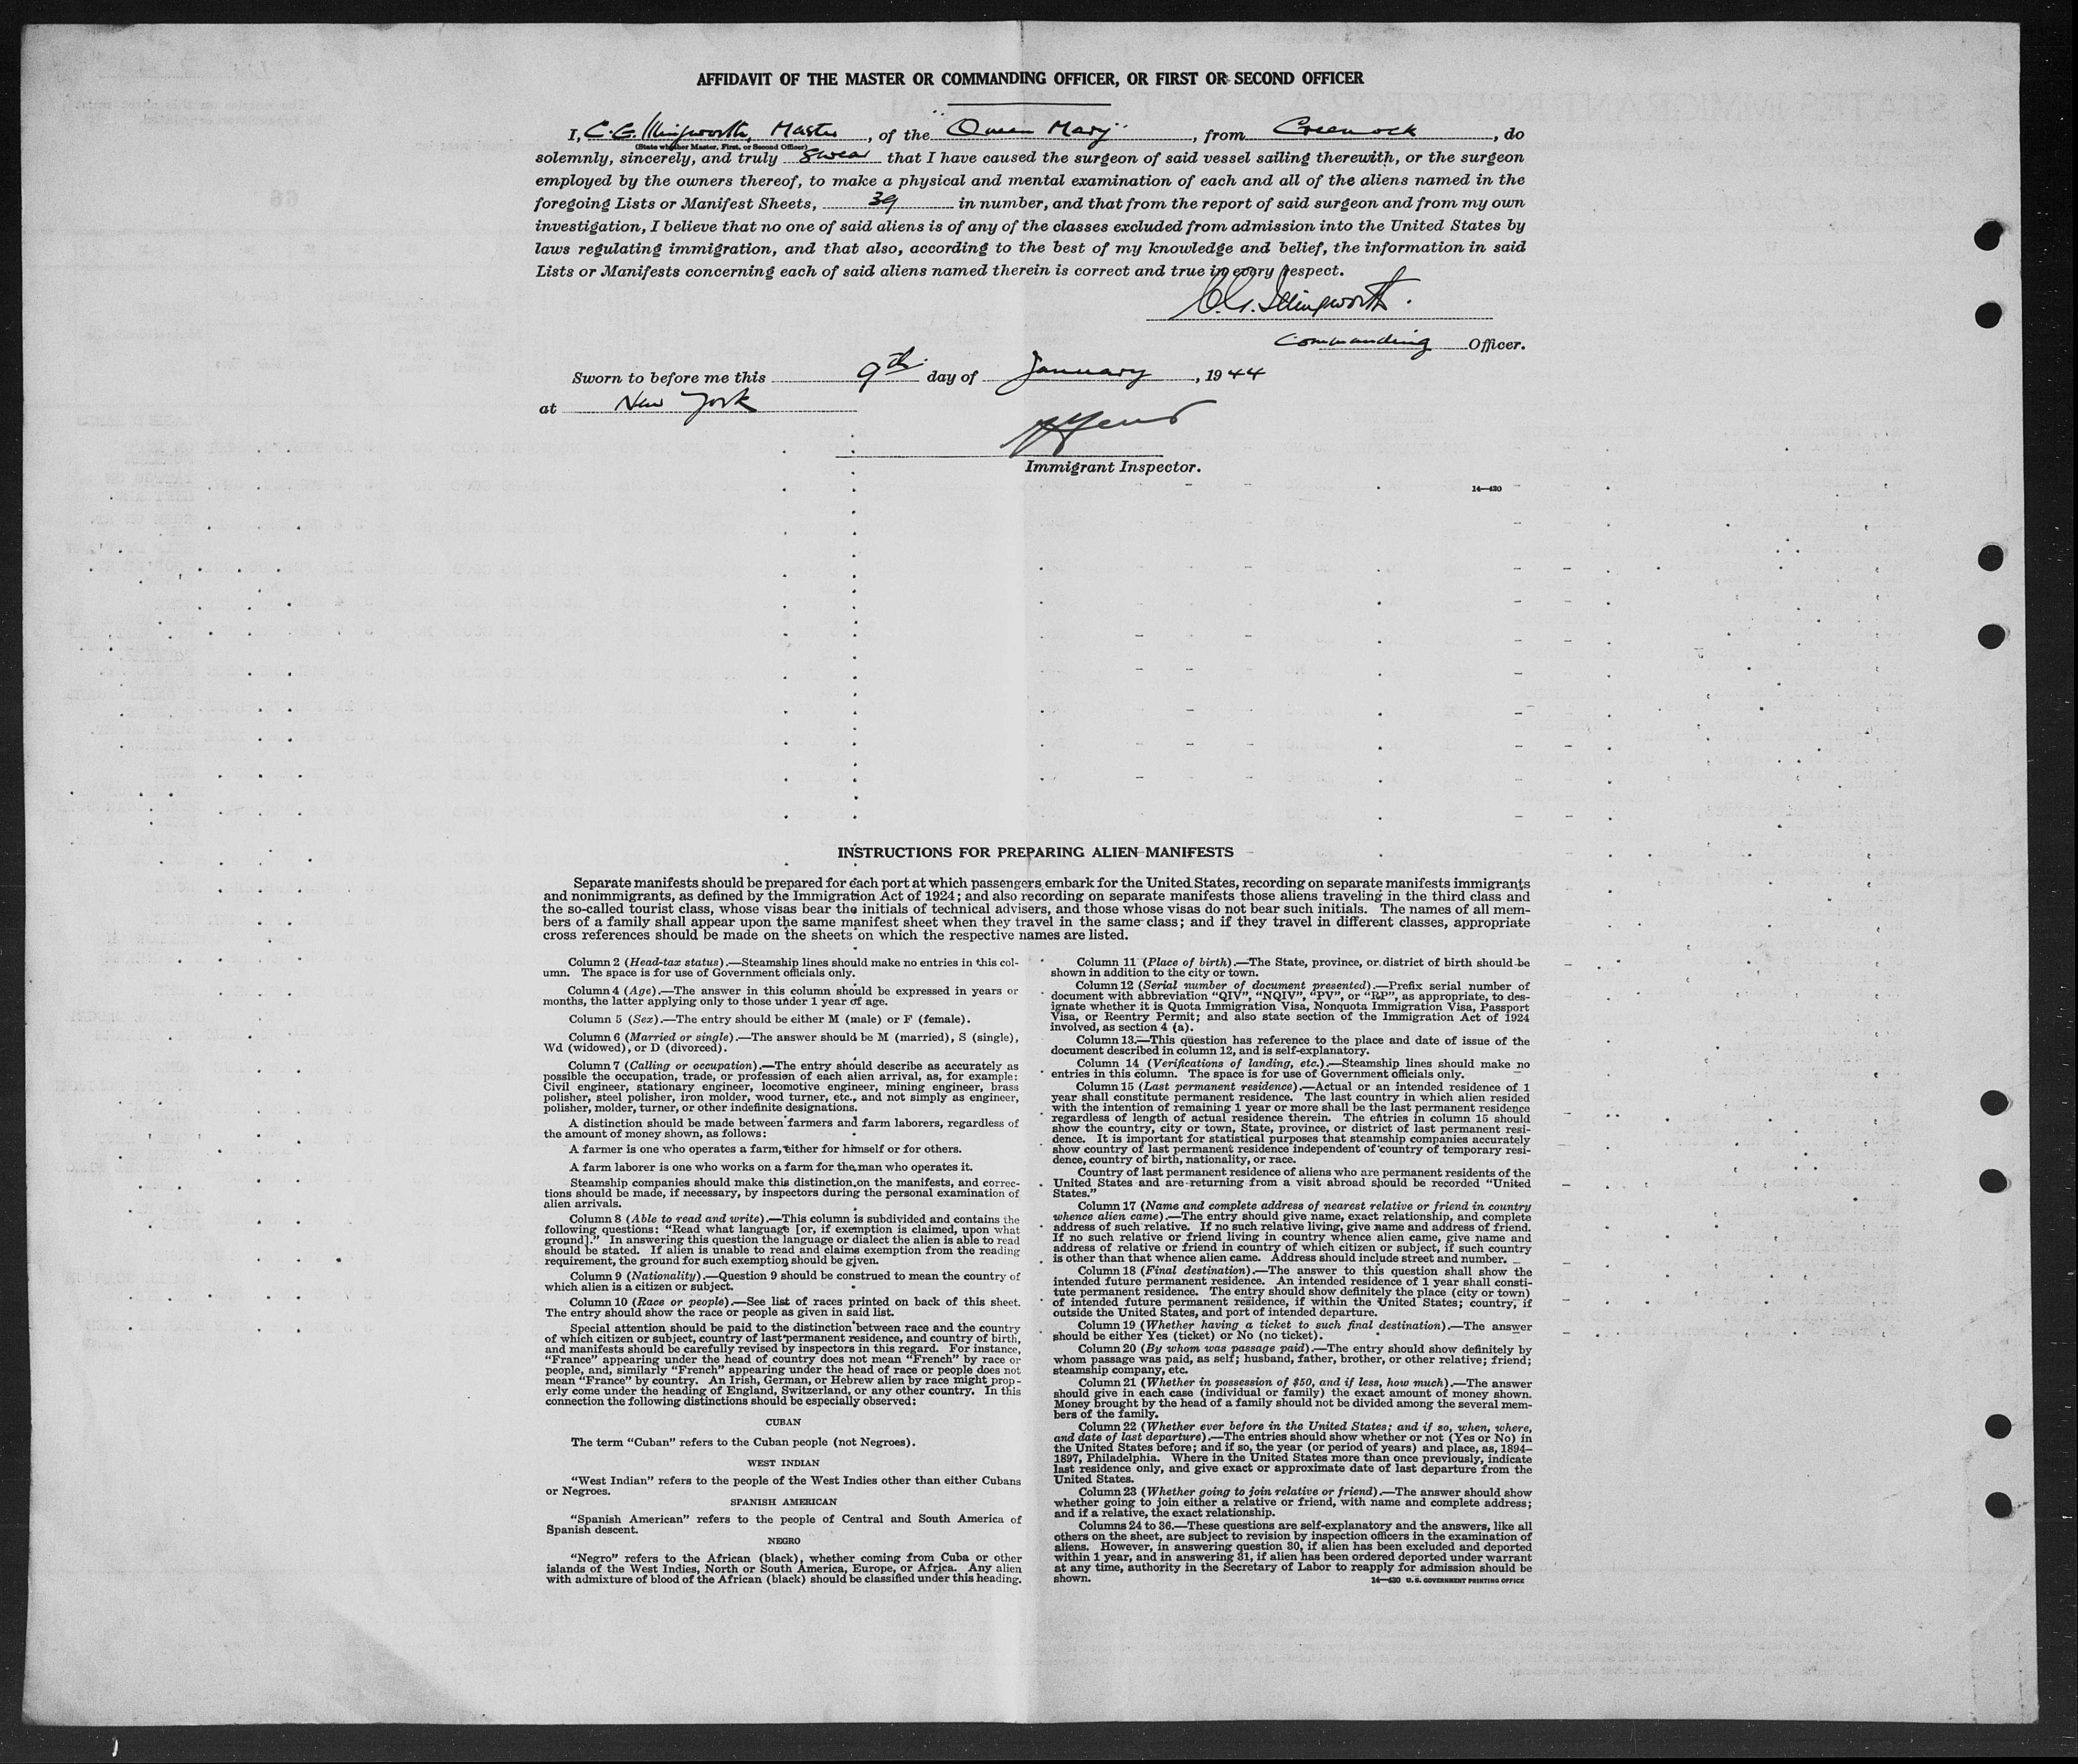 AFFIDAVIT OF THE MASTER OR COMMANDING OFFICER, OR FIRST OR SECOND OFFICER
I, C. G. Illingworth, Master, of the "Queen Mary", from Greenock, do
(State whether Master, First, or Second Officer)
solemnly, sincerely, and truly swear that I have caused the surgeon of said vessel sailing therewith, or the surgeon
employed by the owners thereof, to make a physical and mental examination of each and all of the aliens named in the
foregoing Lists or Manifest Sheets, 39 in number, and that from the report of said surgeon and from my own
investigation, I believe that no one of said aliens is of any of the classes excluded from admission into the United States by
laws regulating immigration, and that also, according to the best of my knowledge and belief, the information in said
Lists or Manifests concerning each of said aliens named therein is correct and true in every respect.
C. G. Illingworth.
Commanding Officer.
Sworn to before me this 9th day of January, 1944
at New York
Immigrant Inspector.
14—420
INSTRUCTIONS FOR PREPARING ALIEN MANIFESTS
Separate manifests should be prepared for each port at which passengers embark for the United States, recording on separate manifests immigrants
and nonimmigrants, as defined by the Immigration Act of 1924; and also recording on separate manifests those aliens traveling in the third class and
the so-called tourist class, whose visas bear the initials of technical advisers, and those whose visas do not bear such initials. The names of all mem-
bers of a family shall appear upon the same manifest sheet when they travel in the same class; and if they travel in different classes, appropriate
cross references should be made on the sheets on which the respective names are listed.
Column 2 (Head-tax status).—Steamship lines should make no entries in this col-
umn. The space is for use of Government officials only.
Column 4 (Age).—The answer in this column should be expressed in years or
months, the latter applying only to those under 1 year of age.
Column 5 (Sex).—The entry should be either M (male) or F (female).
Column 6 (Married or single).—The answer should be M (married), S (single),
Wd (widowed), or D (divorced).
Column 7 (Calling or occupation).—The entry should describe as accurately as
possible the occupation, trade, or profession of each alien arrival, as, for example:
Civil engineer, stationary engineer, locomotive engineer, mining engineer, brass
polisher, steel polisher, iron molder, wood turner, etc., and not simply as engineer,
polisher, molder, turner, or other indefinite designations.
A distinction should be made between farmers and farm laborers, regardless of
the amount of money shown, as follows:
A farmer is one who operates a farm, either for himself or for others.
A farm laborer is one who works on a farm for the man who operates it.
Steamship companies should make this distinction on the manifests, and correc-
tions should be made, if necessary, by inspectors during the personal examination of
alien arrivals.
Column 8 (Able to read and write).—This column is subdivided and contains the
following questions: "Read what language [or, if exemption is claimed, upon what
ground]." In answering this question the language or dialect the alien is able to read
should be stated. If alien is unable to read and claims exemption from the reading
requirement, the ground for such exemption should be given.
Column 9 (Nationality).—Question 9 should be construed to mean the country of
which alien is a citizen or subject.
Column 10 (Race or people).—See list of races printed on back of this sheet.
The entry should show the race or people as given in said list.
Special attention should be paid to the distinction between race and the country
of which citizen or subject, country of last permanent residence, and country of birth,
and manifests should be carefully revised by inspectors in this regard. For instance,
"France" appearing under the head of country does not mean "French" by race or
people, and, similarly "French" appearing under the head of race or people does not
mean "France" by country. An Irish, German, or Hebrew alien by race might prop-
erly come under the heading of England, Switzerland, or any other country. In this
connection the following distinctions should be especially observed:
CUBAN
The term "Cuban" refers to the Cuban people (not Negroes).
WEST INDIAN
"West Indian" refers to the people of the West Indies other than either Cubans
or Negroes.
SPANISH AMERICAN
"Spanish American" refers to the people of Central and South America of
Spanish descent.
NEGRO
"Negro" refers to the African (black), whether coming from Cuba or other
islands of the West Indies, North or South America, Europe, or Africa. Any alien
with admixture of blood of the African (black) should be classified under this heading.
Column 11 (Place of birth).—The State, province, or district of birth should be
shown in addition to the city or town.
Column 12 (Serial number of document presented).—Prefix serial number of
document with abbreviation "QIV", "NQIV", "PV", or "RP", as appropriate, to des-
ignate whether it is Quota Immigration Visa, Nonquota Immigration Visa, Passport
Visa, or Reentry Permit; and also state section of the Immigration Act of 1924
involved, as section 4 (a).
Column 13.—This question has reference to the place and date of issue of the
document described in column 12, and is self-explanatory.
Column 14 (Verifications of landing, etc.).—Steamship lines should make no
entries in this column. The space is for use of Government officials only.
Column 15 (Last permanent residence).—Actual or an intended residence of 1
year shall constitute permanent residence. The last country in which alien resided
with the intention of remaining 1 year or more shall be the last permanent residence
regardless of length of actual residence therein. The entries in column 15 should
show the country, city or town, State, province, or district of last permanent resi-
dence. It is important for statistical purposes that steamship companies accurately
show country of last permanent residence independent of country of temporary resi-
dence, country of birth, nationality, or race.
Country of last permanent residence of aliens who are permanent residents of the
United States and are returning from a visit abroad should be recorded "United
States."
Column 17 (Name and complete address of nearest relative or friend in country
whence alien came).—The entry should give name, exact relationship, and complete
address of such relative. If no such relative living, give name and address of friend.
If no such relative or friend living in country whence alien came, give name and
address of relative or friend in country of which citizen or subject, if such country
is other than that whence alien came. Address should include street and number.
Column 18 (Final destination).—The answer to this question shall show the
intended future permanent residence. An intended residence of 1 year shall consti-
tute permanent residence. The entry should show definitely the place (city or town)
of intended future permanent residence, if within the United States; country, if
outside the United States, and port of intended departure.
Column 19 (Whether having a ticket to such final destination).—The answer
should be either Yes (ticket) or No (no ticket).
Column 20 (By whom was passage paid).—The entry should show definitely by
whom passage was paid, as self; husband, father, brother, or other relative; friend;
steamship company, etc.
Column 21 (Whether in possession of $50, and if less, how much).—The answer
should give in each case (individual or family) the exact amount of money shown.
Money brought by the head of a family should not be divided among the several mem-
bers of the family.
Column 22 (Whether ever before in the United States; and if so, when, where,
and date of last departure).—The entries should show whether or not (Yes or No) in
the United States before; and if so, the year (or period of years) and place, as, 1894–
1897, Philadelphia. Where in the United States more than once previously, indicate
last residence only, and give exact or approximate date of last departure from the
United States.
Column 23 (Whether going to join relative or friend).—The answer should show
whether going to join either a relative or friend, with name and complete address;
and if a relative, the exact relationship.
Columns 24 to 36.—These questions are self-explanatory and the answers, like all
others on the sheet, are subject to revision by inspection officers in the examination of
aliens. However, in answering question 30, if alien has been excluded and deported
within 1 year, and in answering 31, if alien has been ordered deported under warrant
at any time, authority in the Secretary of Labor to reapply for admission should be
shown.
14—420 U. S. GOVERNMENT PRINTING OFFICE